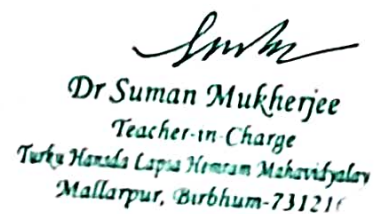 Dr Suman Mukherjee
Teacher-in-Charge
Turku Hansda Lapsa Hemram Mahavidyalay
Mallarpur, Birbhum-73121